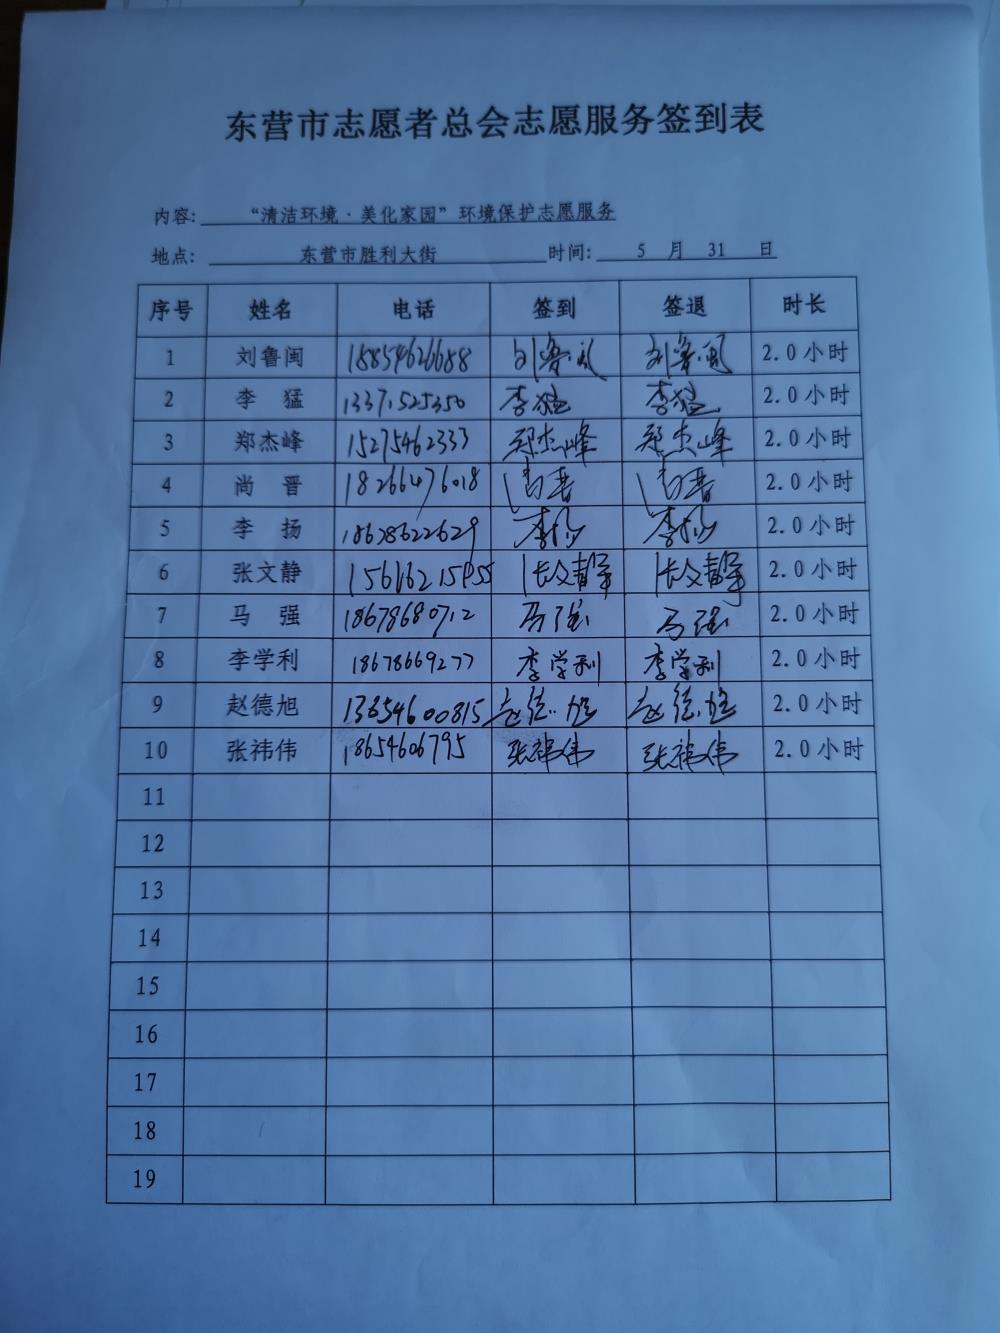 东营市志愿者总会志愿服务签到表
内容: “清洁环境·美化家园”环境保护志愿服务
地点: 东营市胜利大街 时间: 5 月 31 日
序号 姓名 电话 签到 签退 时长
1 刘鲁闽 18854626688 刘鲁闽 刘鲁闽 2.0小时
2 李 猛 13371525350 李猛 李猛 2.0小时
3 郑杰峰 15275462333 郑杰峰 郑杰峰 2.0小时
4 尚 晋 18266476018 尚晋 尚晋 2.0小时
5 李 扬 李扬 李扬 2.0小时
6 张文静 张文静 张文静 2.0小时
7 马 强 18678680712 马强 马强 2.0小时
8 李学利 18678669277 李学利 李学利 2.0小时
9 赵德旭 13654600815 赵德旭 赵德旭 2.0小时
10 张祎伟 18654606795 张祎伟 张祎伟 2.0小时
11
12
13
14
15
16
17
18
19